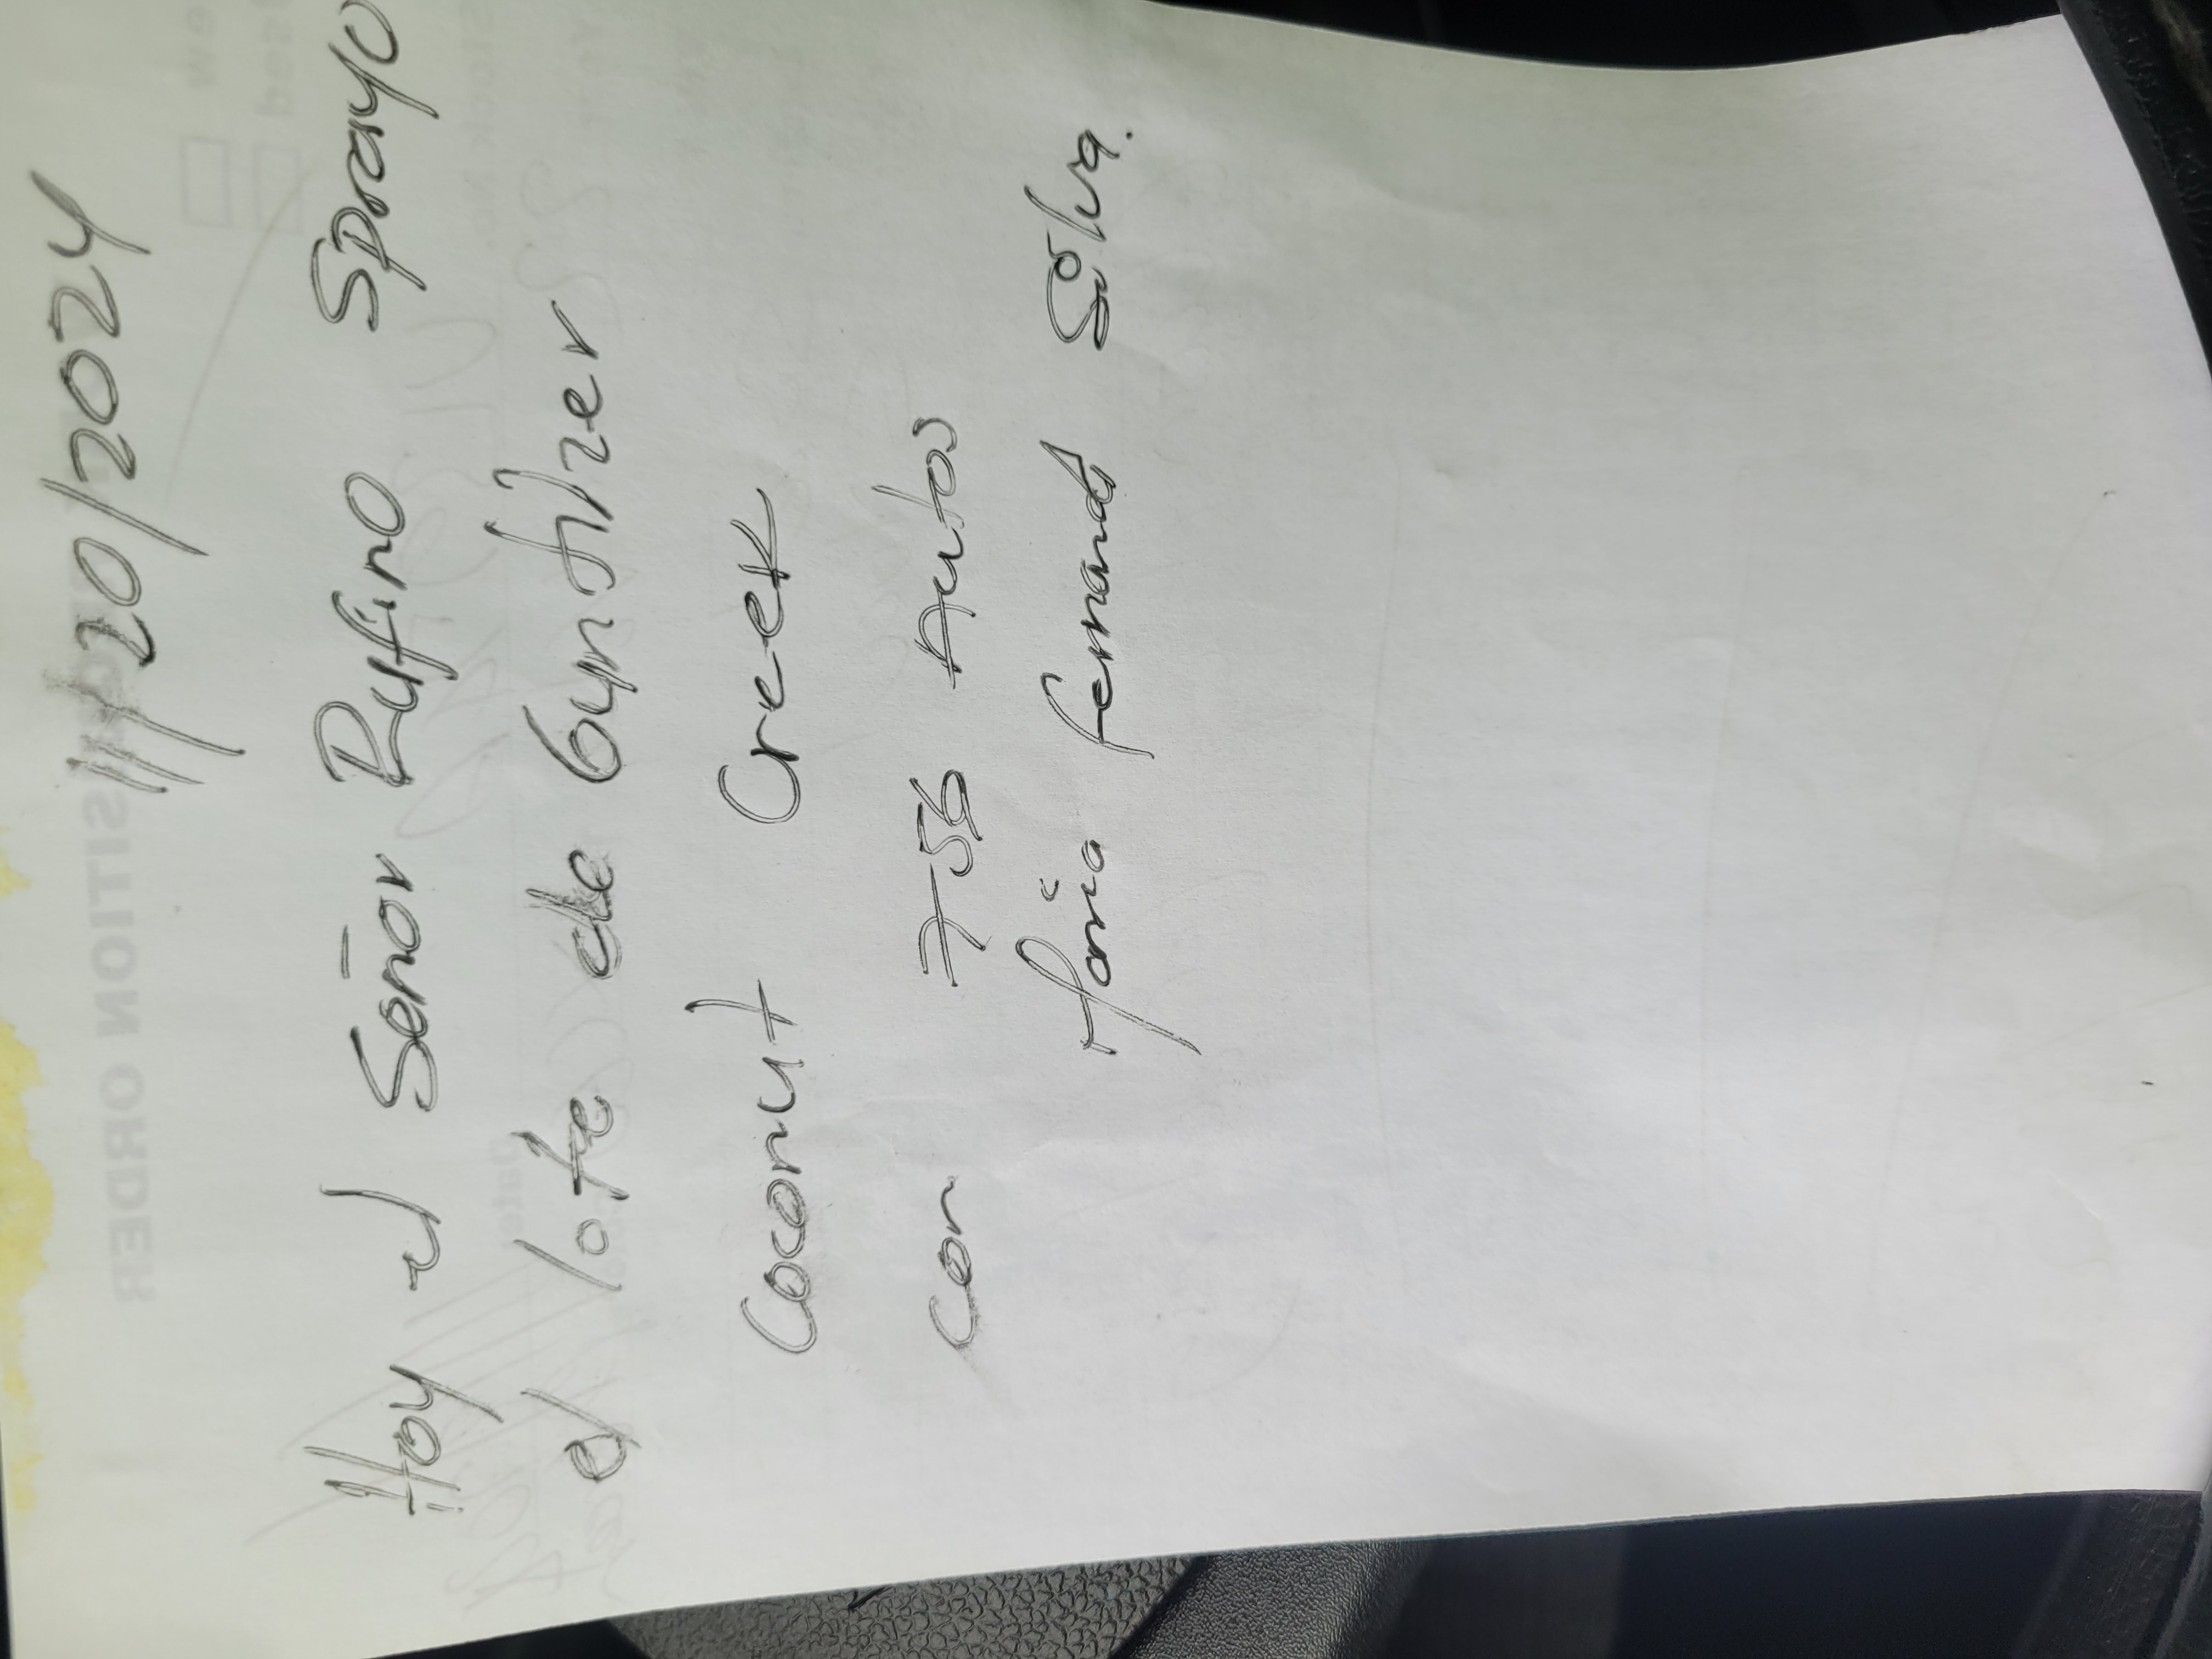 11/20/2024
Hoy el Señor Rufino Sprayo
el lote de Gunther
Coconut Creek
con 756 Autos
Maria Fernand Silva.
REQUISITION ORDER
Date
Stock No.